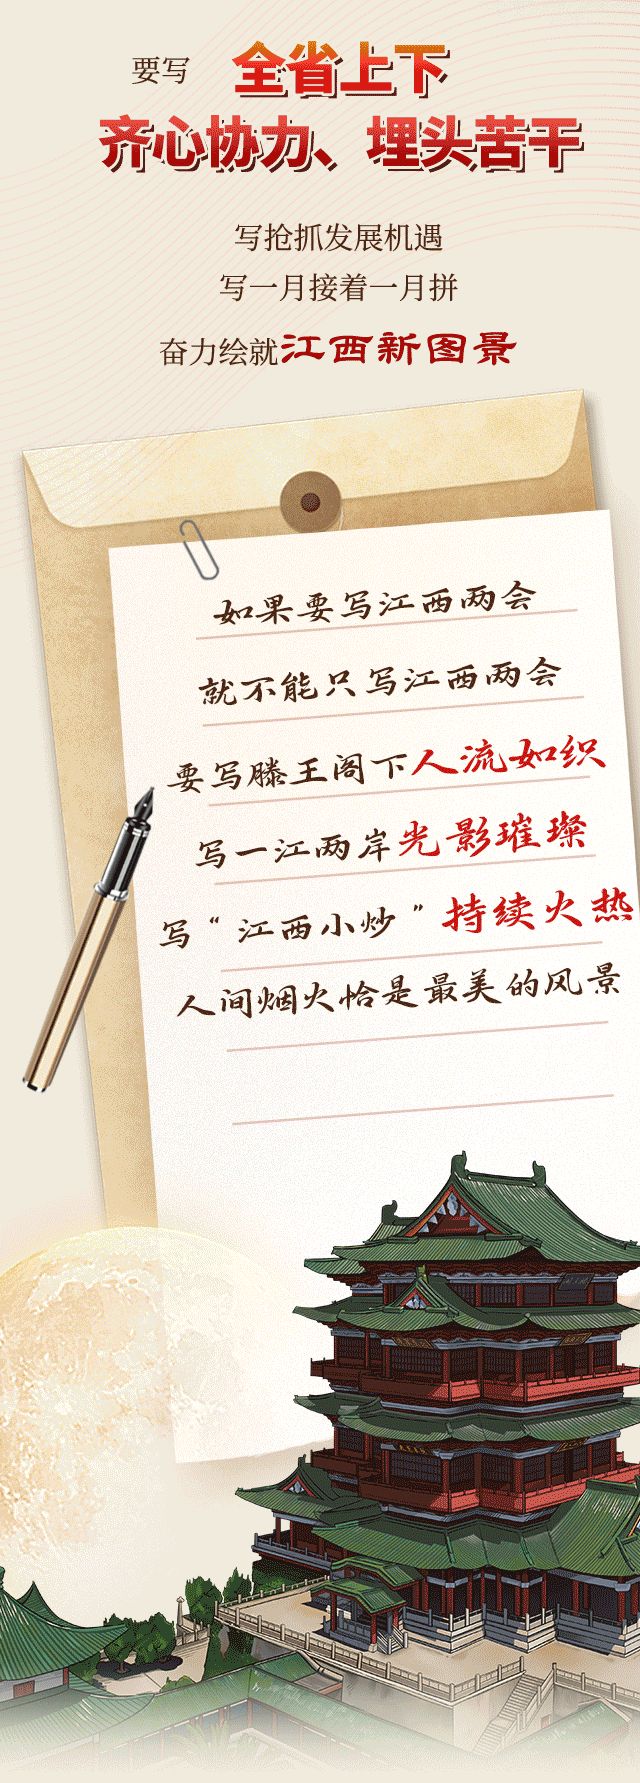 要写 全省上下
齐心协力、埋头苦干
写抢抓发展机遇
写一月接着一月拼
奋力绘就江西新图景
如果要写江西两会
就不能只写江西两会
要写滕王阁下人流如织
写一江两岸光影璀璨
写“江西小炒”持续火热
人间烟火恰是最美的风景